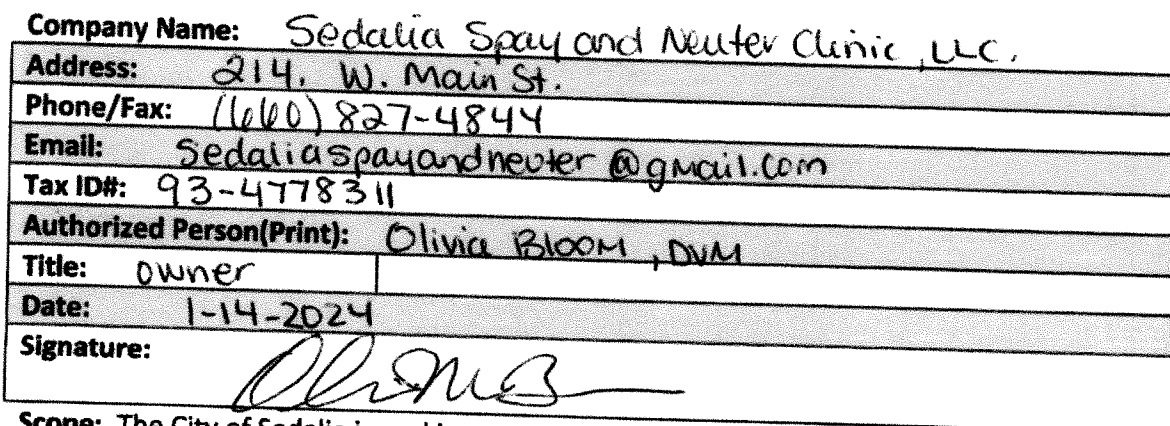 Company Name: Sedalia Spay and Neuter Clinic, LLC.
Address: 214. W. Main St.
Phone/Fax: (660) 827-4844
Email: Sedaliaspayandneuter@gmail.com
Tax ID#: 93-4778311
Authorized Person(Print): Olivia Bloom, DVM
Title: owner
Date: 1-14-2024
Signature:
Scope: The City of Sedalia is